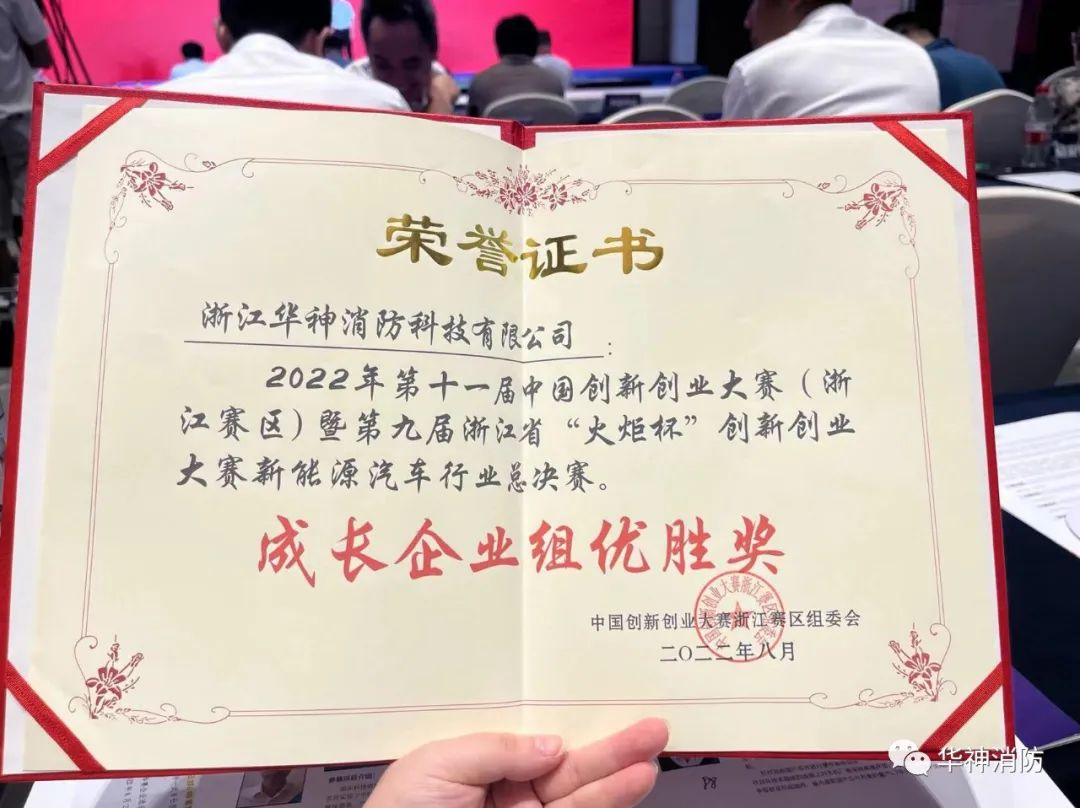 荣誉证书
浙江华神消防科技有限公司：
2022年第十一届中国创新创业大赛（浙
江赛区）暨第九届浙江省“火炬杯”创新创业
大赛新能源汽车行业总决赛。
成长企业组优胜奖
中国创新创业大赛浙江赛区组委会
二〇二二年八月
华神消防